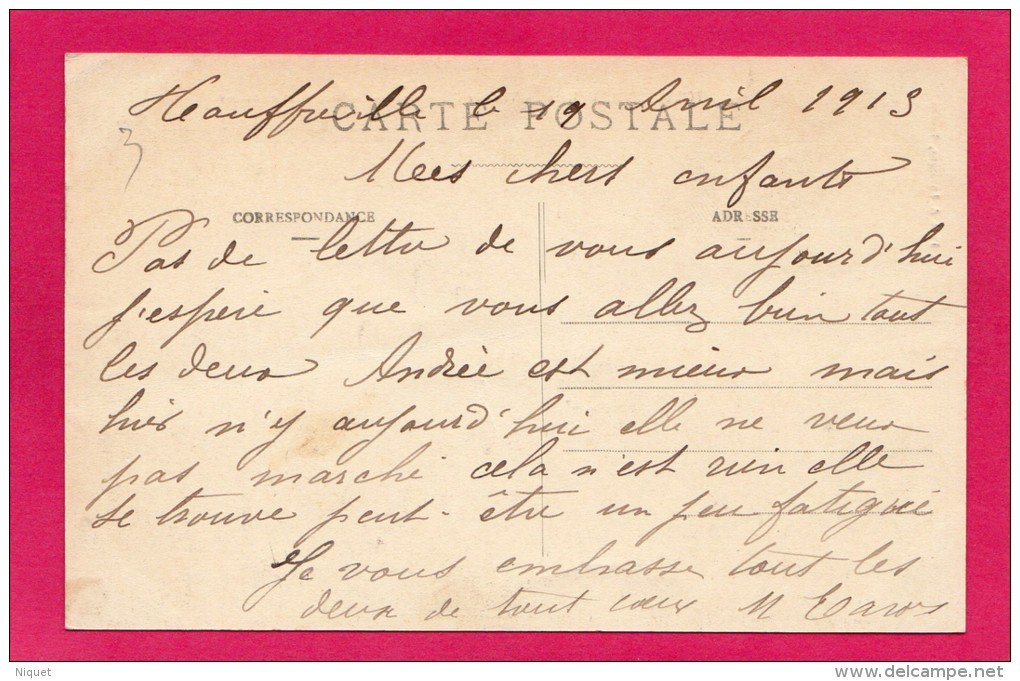 Heauffreville le 19 Avril 1913
CARTE POSTALE
3
Mes chers enfants
CORRESPONDANCE
ADRESSE
Pas de lettre de vous aujourd'hui
j'espère que vous allez bien tout
les deux Andrée est mieux mais
hier n'y aujourd'hui elle ne veux
pas marché cela n'est rien elle
se trouve peut-être un peu fatigué
Je vous embrasse tout les
deux de tout coeur M
Niquet
http://www.delcampe.net